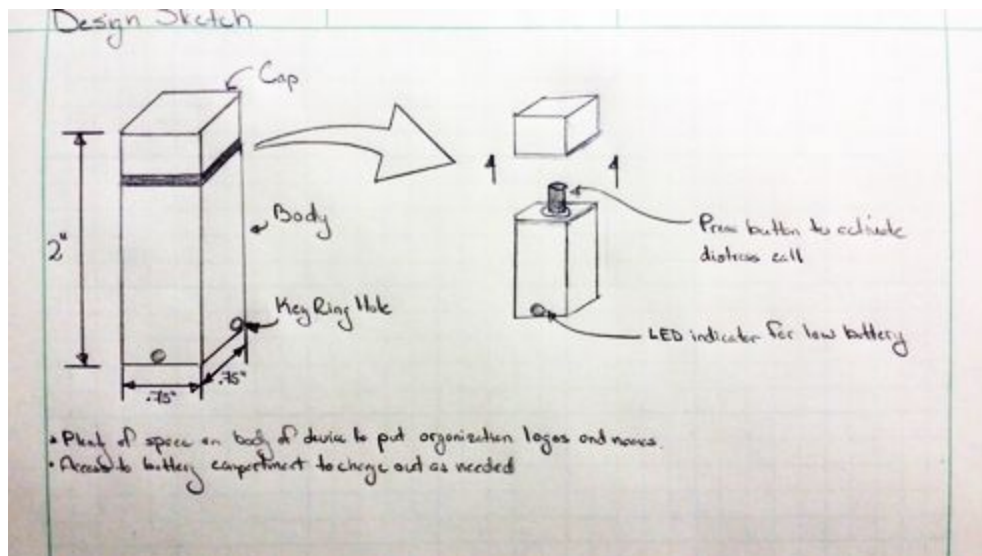 Design Sketch
Cap
2"
Body
Key Ring Hole
.75"
.75"
Press button to activate
distress call
LED indicator for low battery
• Plenty of space on body of device to put organization logos and names.
• Access to battery compartment to change out as needed